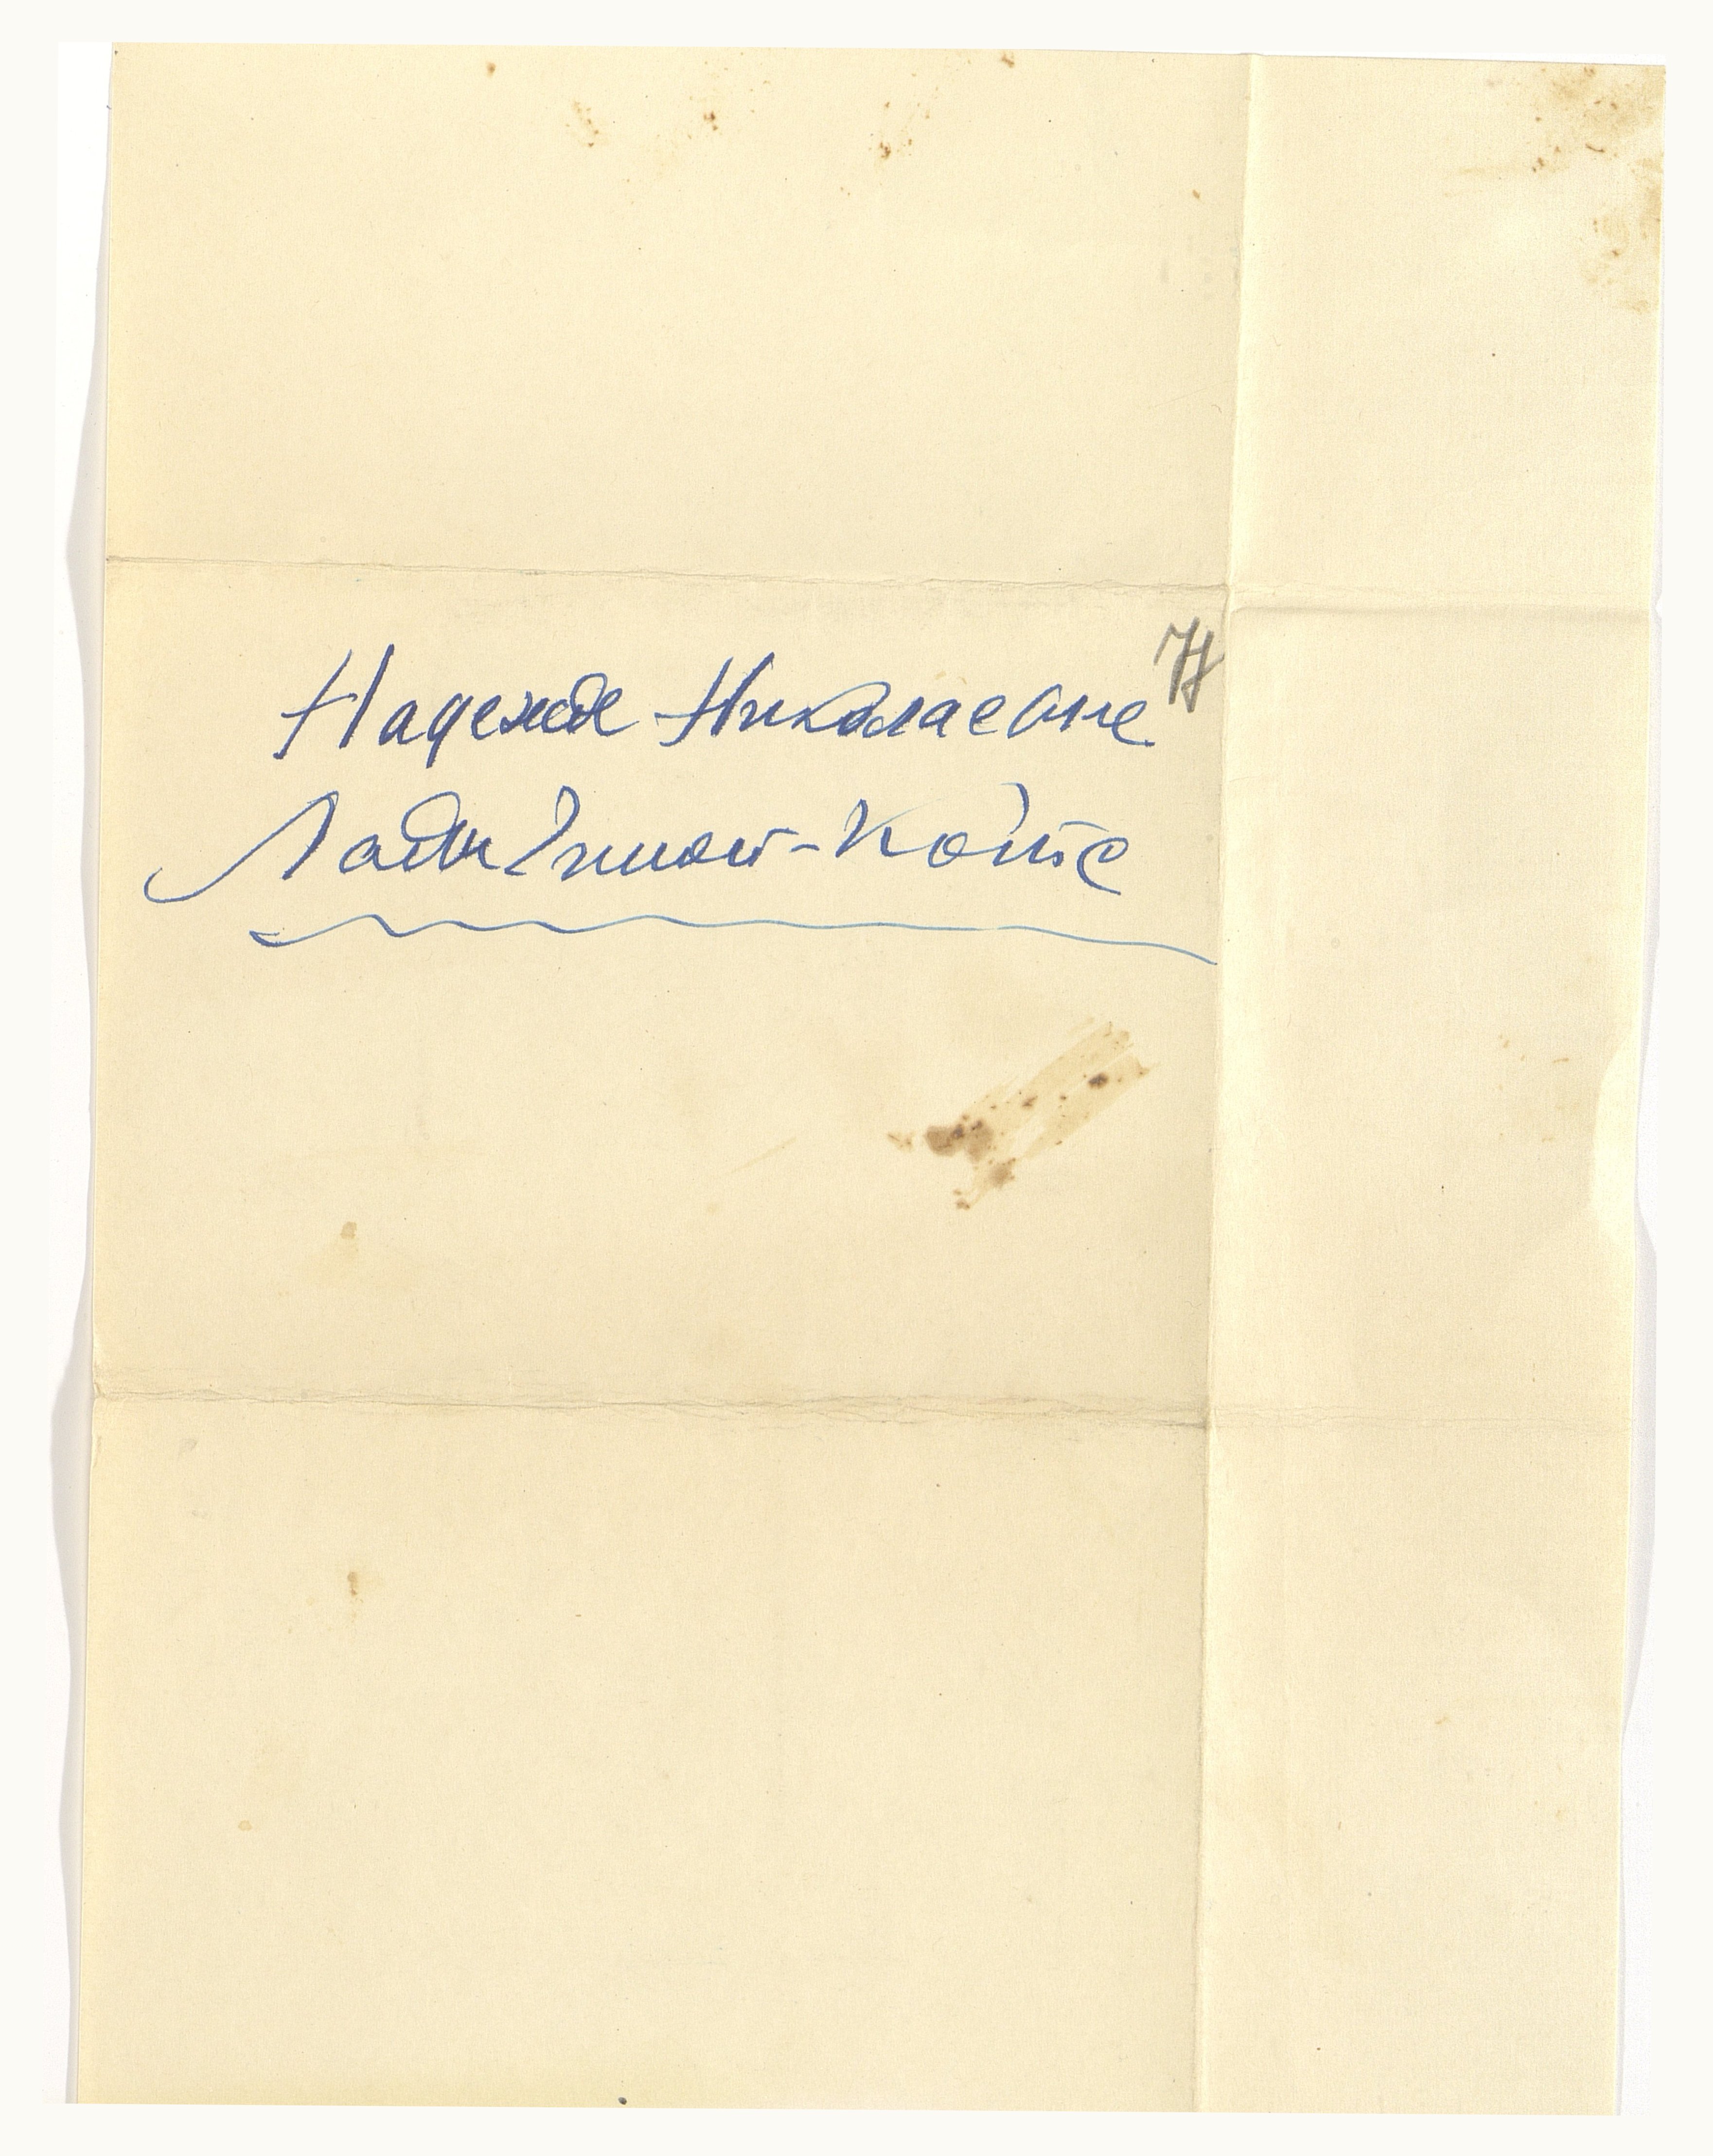 Надежде Николаевне
Ладыгиной-Котс